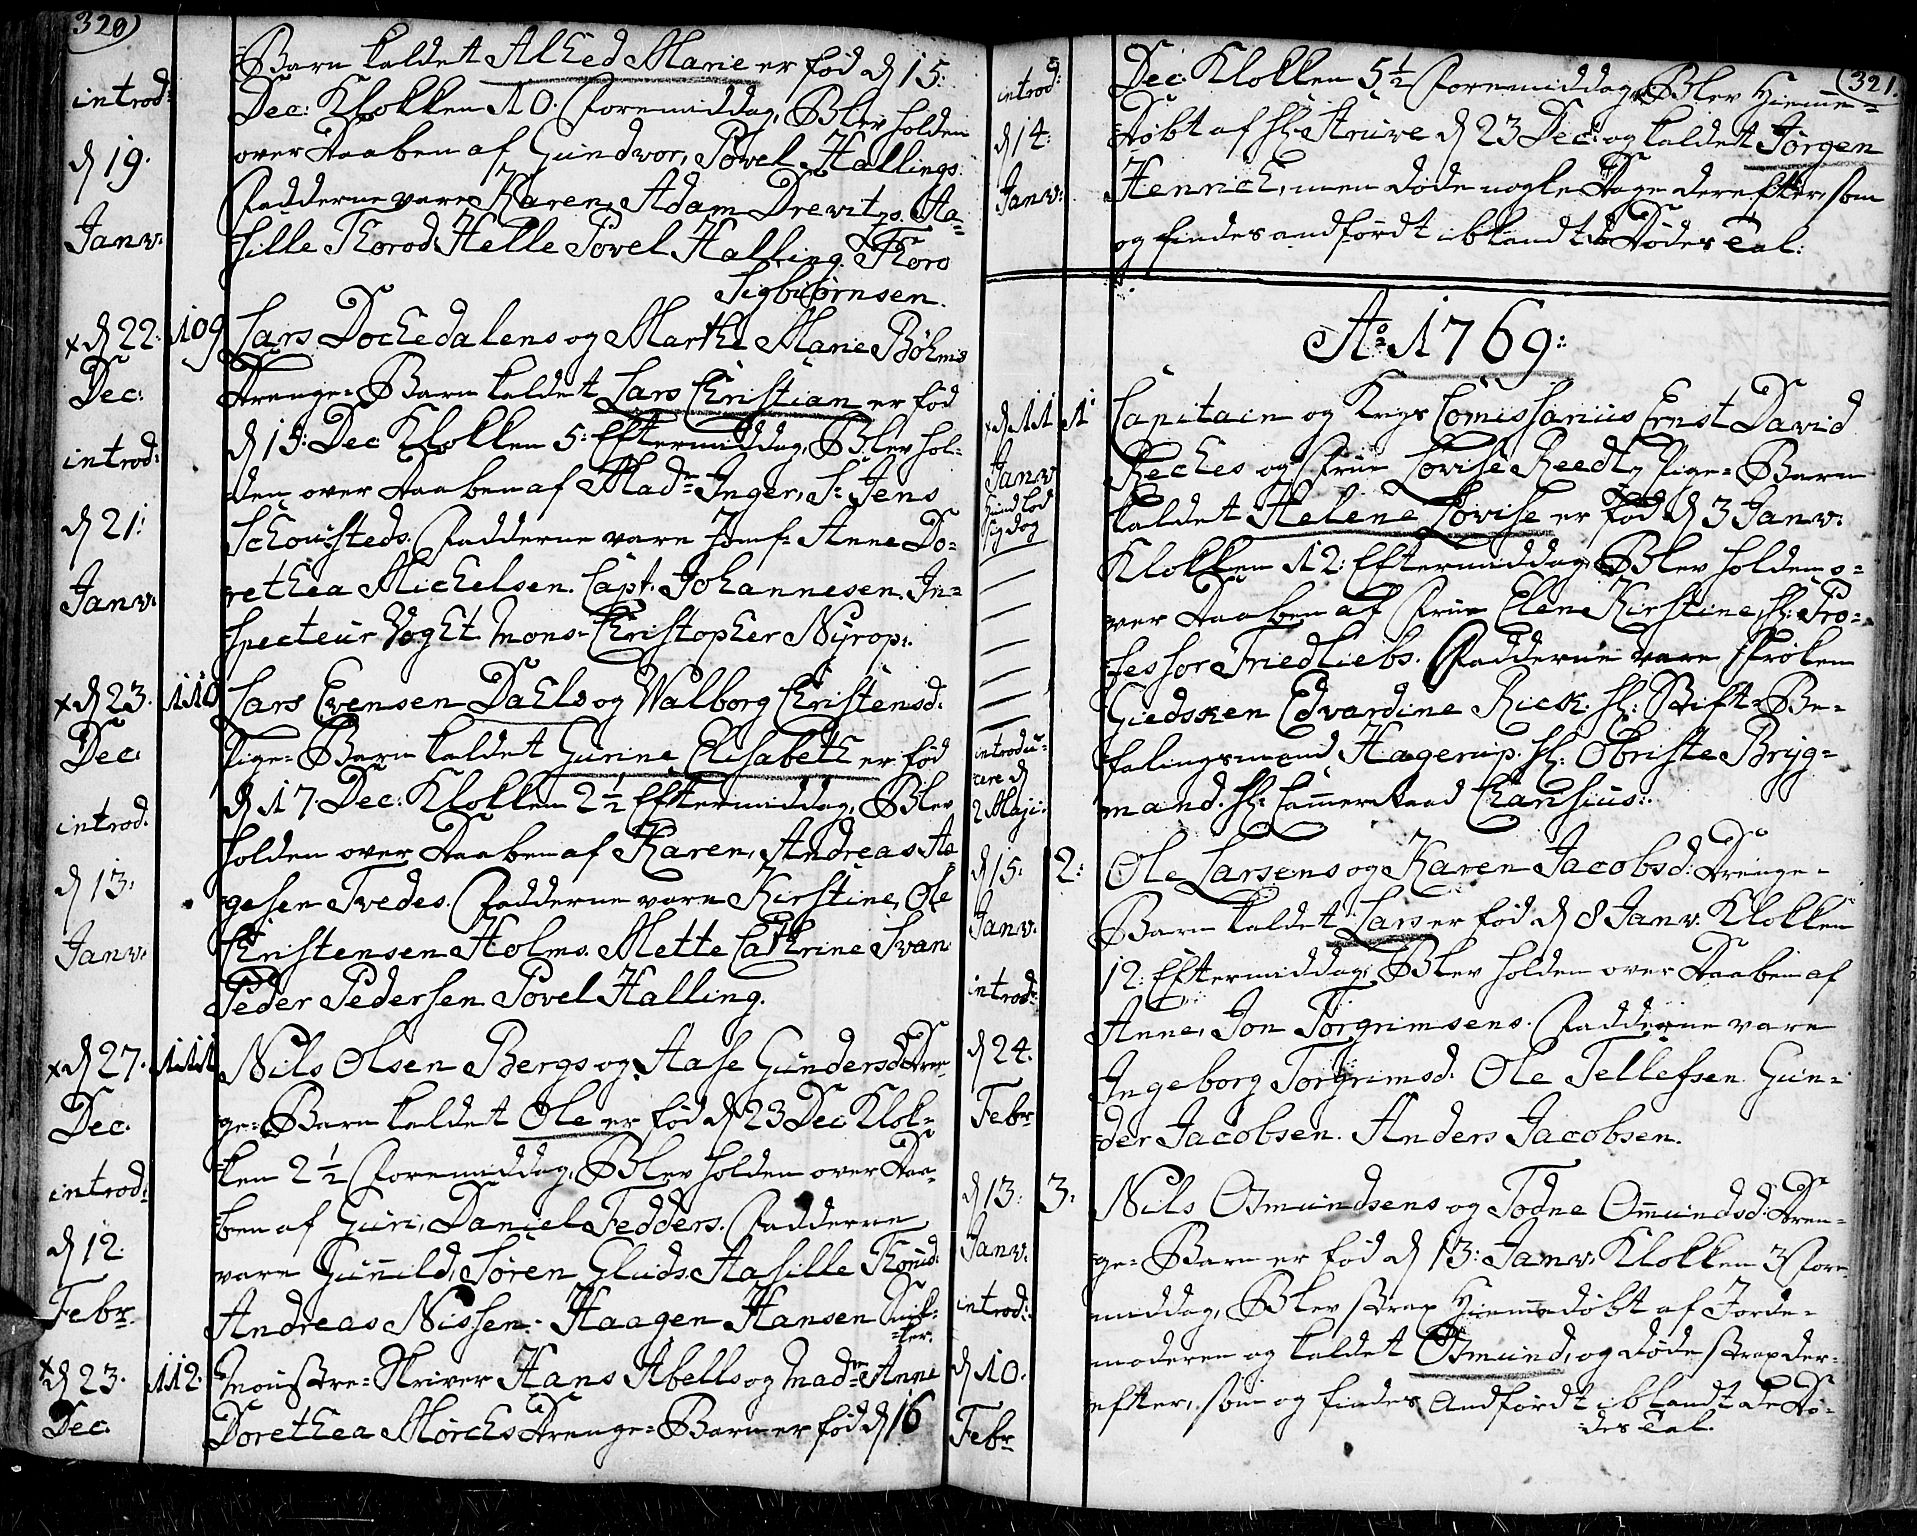 320)
introd:
d 19.
Janv:
Barn kaldet Alhed Marie er fød d 15:
Dec: Klokken 10. Formiddag, Blev holden
over Daaben af Gundvor, Povel Hallings.
Fadderne vare Karen, Adam Drevitzs. Aa-
sille Thorod. Helle Povel Halling. Thoro
Sigbiørnsen.
x d 22: 109
Dec:
introd:
d 21:
Janv:
Lars Dochedalens og Marthe Marie Bøhms
Drenge-Barn kaldet Lars Christian er fød
d 15: Dec Klokken 5: Eftermiddag, Blev hol-
den over Daaben af Madm Inger, Sr Jens
Schousteds. Fadderne vare Jomf: Anne Do-
rethea Michelsen. Capt. Johannesen. In-
specteur Voght Mons: Christopher Nyrop:
x d 23. 110
Dec:
introd.
d 13.
Janv.
Lars Evensen Dahls og Walborg Christensd:
Pige-Barn kaldet Gurine Elisabeth er fød
d 17. Dec: Klokken 2½ Eftermiddag, Blev
holden over Daaben af Karen, Andreas Aa-
gesen Tvedes. Fadderne vare Kirstine, Ole
Christensen Holms. Mette Cathrine Svan
Peder Pedersen Povel Halling.
x d 27. 111
Dec.
introd:
d 12.
Febr.
Nils Olsen Bergs og Aase Gundersd Dren-
ge-Barn kaldet Ole er fød d 23 Dec Klok-
ken 2½ Formiddag, Blev holden over Daa-
ben af Guri, Daniel Fedders. Fadderne
vare Gunnild, Søren Gluds. Aasille Thorud:
Andreas Nissen. Haagen Hansen Snik-
ker.
x d 23. 112.
Dec.
Mønstre-Skriver Hans Abells og Madm Anne
Dorethea Mørchs Drenge-Barn er fød d 16
321.
introd:
d 14:
Janv:
Dec: Klokken 5½ Formiddag, Blev Hieme-
døbt af Hr: Struve d 23 Dec: og kaldet Jørgen
Henrich, men døde nogle Dage derefter, som
og findes andførdt iblandt de Dødes Tal:
Ao 1769:
x d 11 1
Janv
introdu-
cere d
2 Maji.
Capitain og Krigs Comissarius Ernst David
Reches og Frue Lovise Reedtz Pige-Barn
kaldet Helene Lovise er fød d 3 Janv:
Klokken 12: Eftermiddag, Blev holden o-
ver Daaben af Frue Elen Kirstine, Hr: Pro-
fessor Friedliebs. Fadderne vare Frøken
Giedsken Edvardine Rick. Hr: Stift-Be-
falingsmand Hagerup. Hr: Obriste Bryg-
mand. Hr: Cammer Raad Chansius:
d 15. 2:
Janv.
introd:
d 24.
Febr
Ole Larsens og Karen Jacobsd: Drenge-
Barn kaldet Lars er fød d 8 Janv. Klokken
12: Eftermiddag, Blev holden over Daaben af
Anne, Jon Torgrimsens. Fadderne vare
Ingeborg Torgrimsd: Ole Tellefsen. Gun-
der Jacobsen. Anders Jacobsen.
d 13: 3.
Janv.
introd:
d 10.
Febr
Nils Osmundsens og Todne Omundsd: Dren-
ge-Barn er fød d 13: Janv. Klokken 3 For-
middag, Blev strax Hiemedøbt af Jorde-
moderen og kaldet Osmund, og døde strax der-
efter, som og findes Andførdt iblandt de Dø-
des Tal.